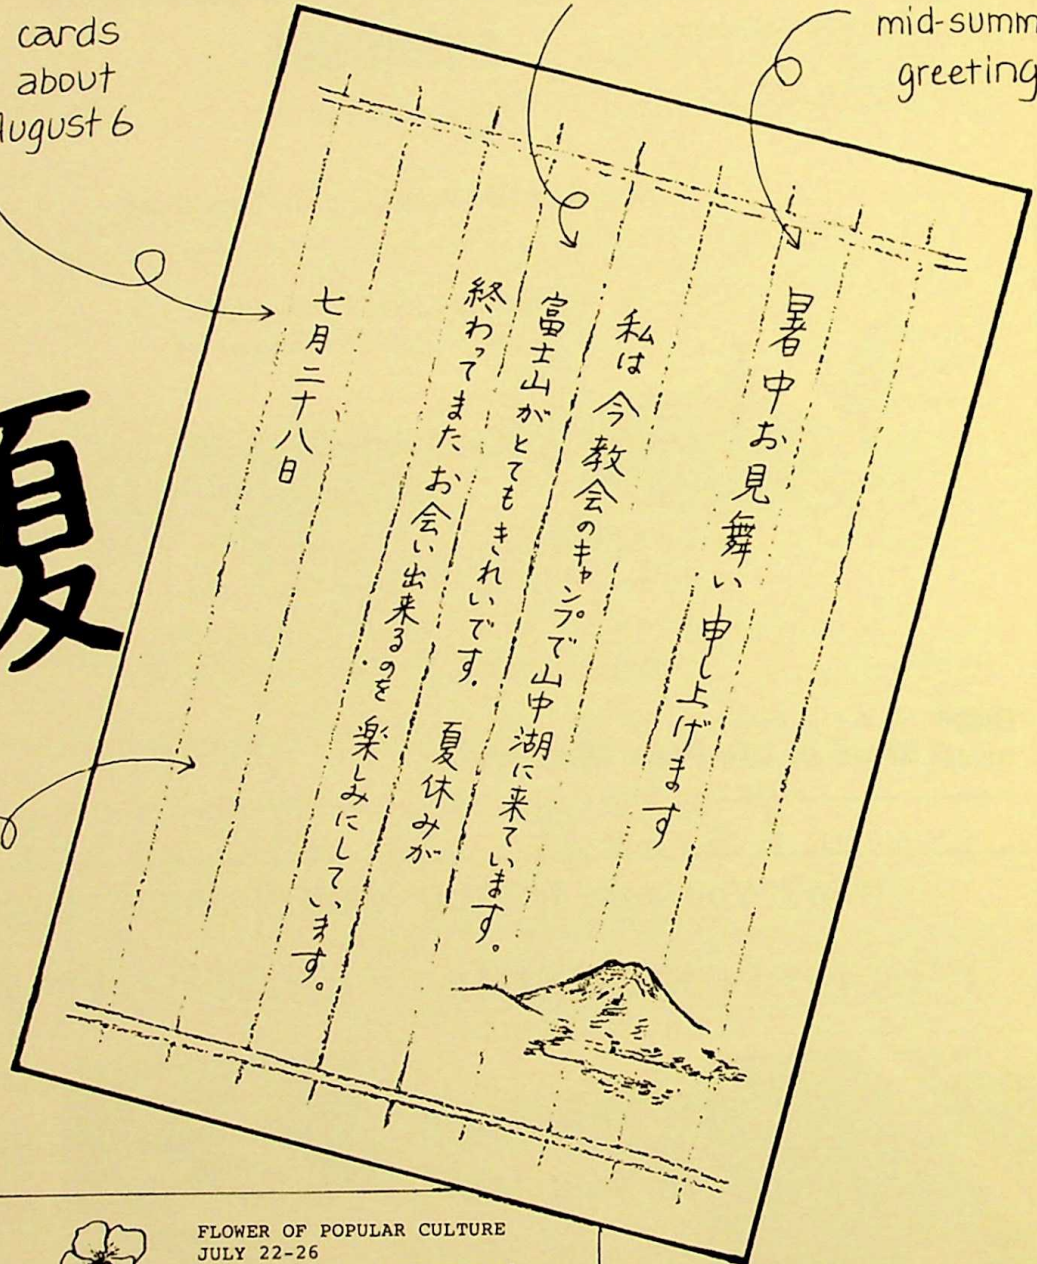 cards
about
August 6
mid-summ
greeting
暑中お見舞い申し上げます
私は今教会のキャンプで山中湖に来ています。
富士山がとてもきれいです。夏休みが
終わってまたお会い出来るのを楽しみにしています。
七月二十八日
夏
FLOWER OF POPULAR CULTURE
JULY 22-26